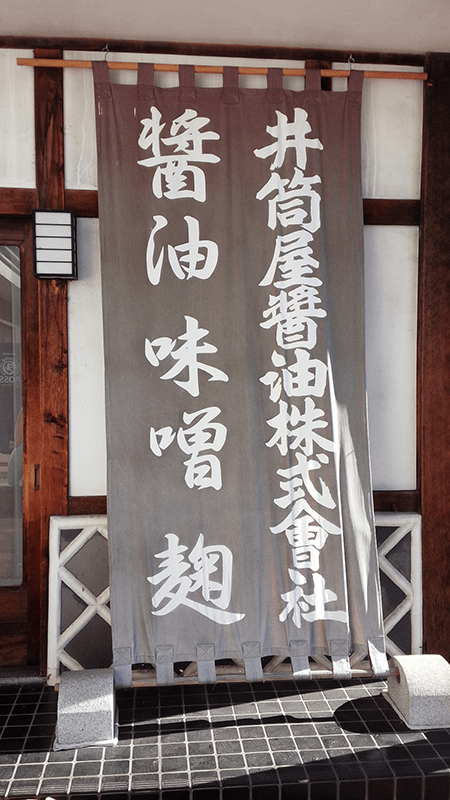 井筒屋醬油株式會社
醬油
味噌
麹